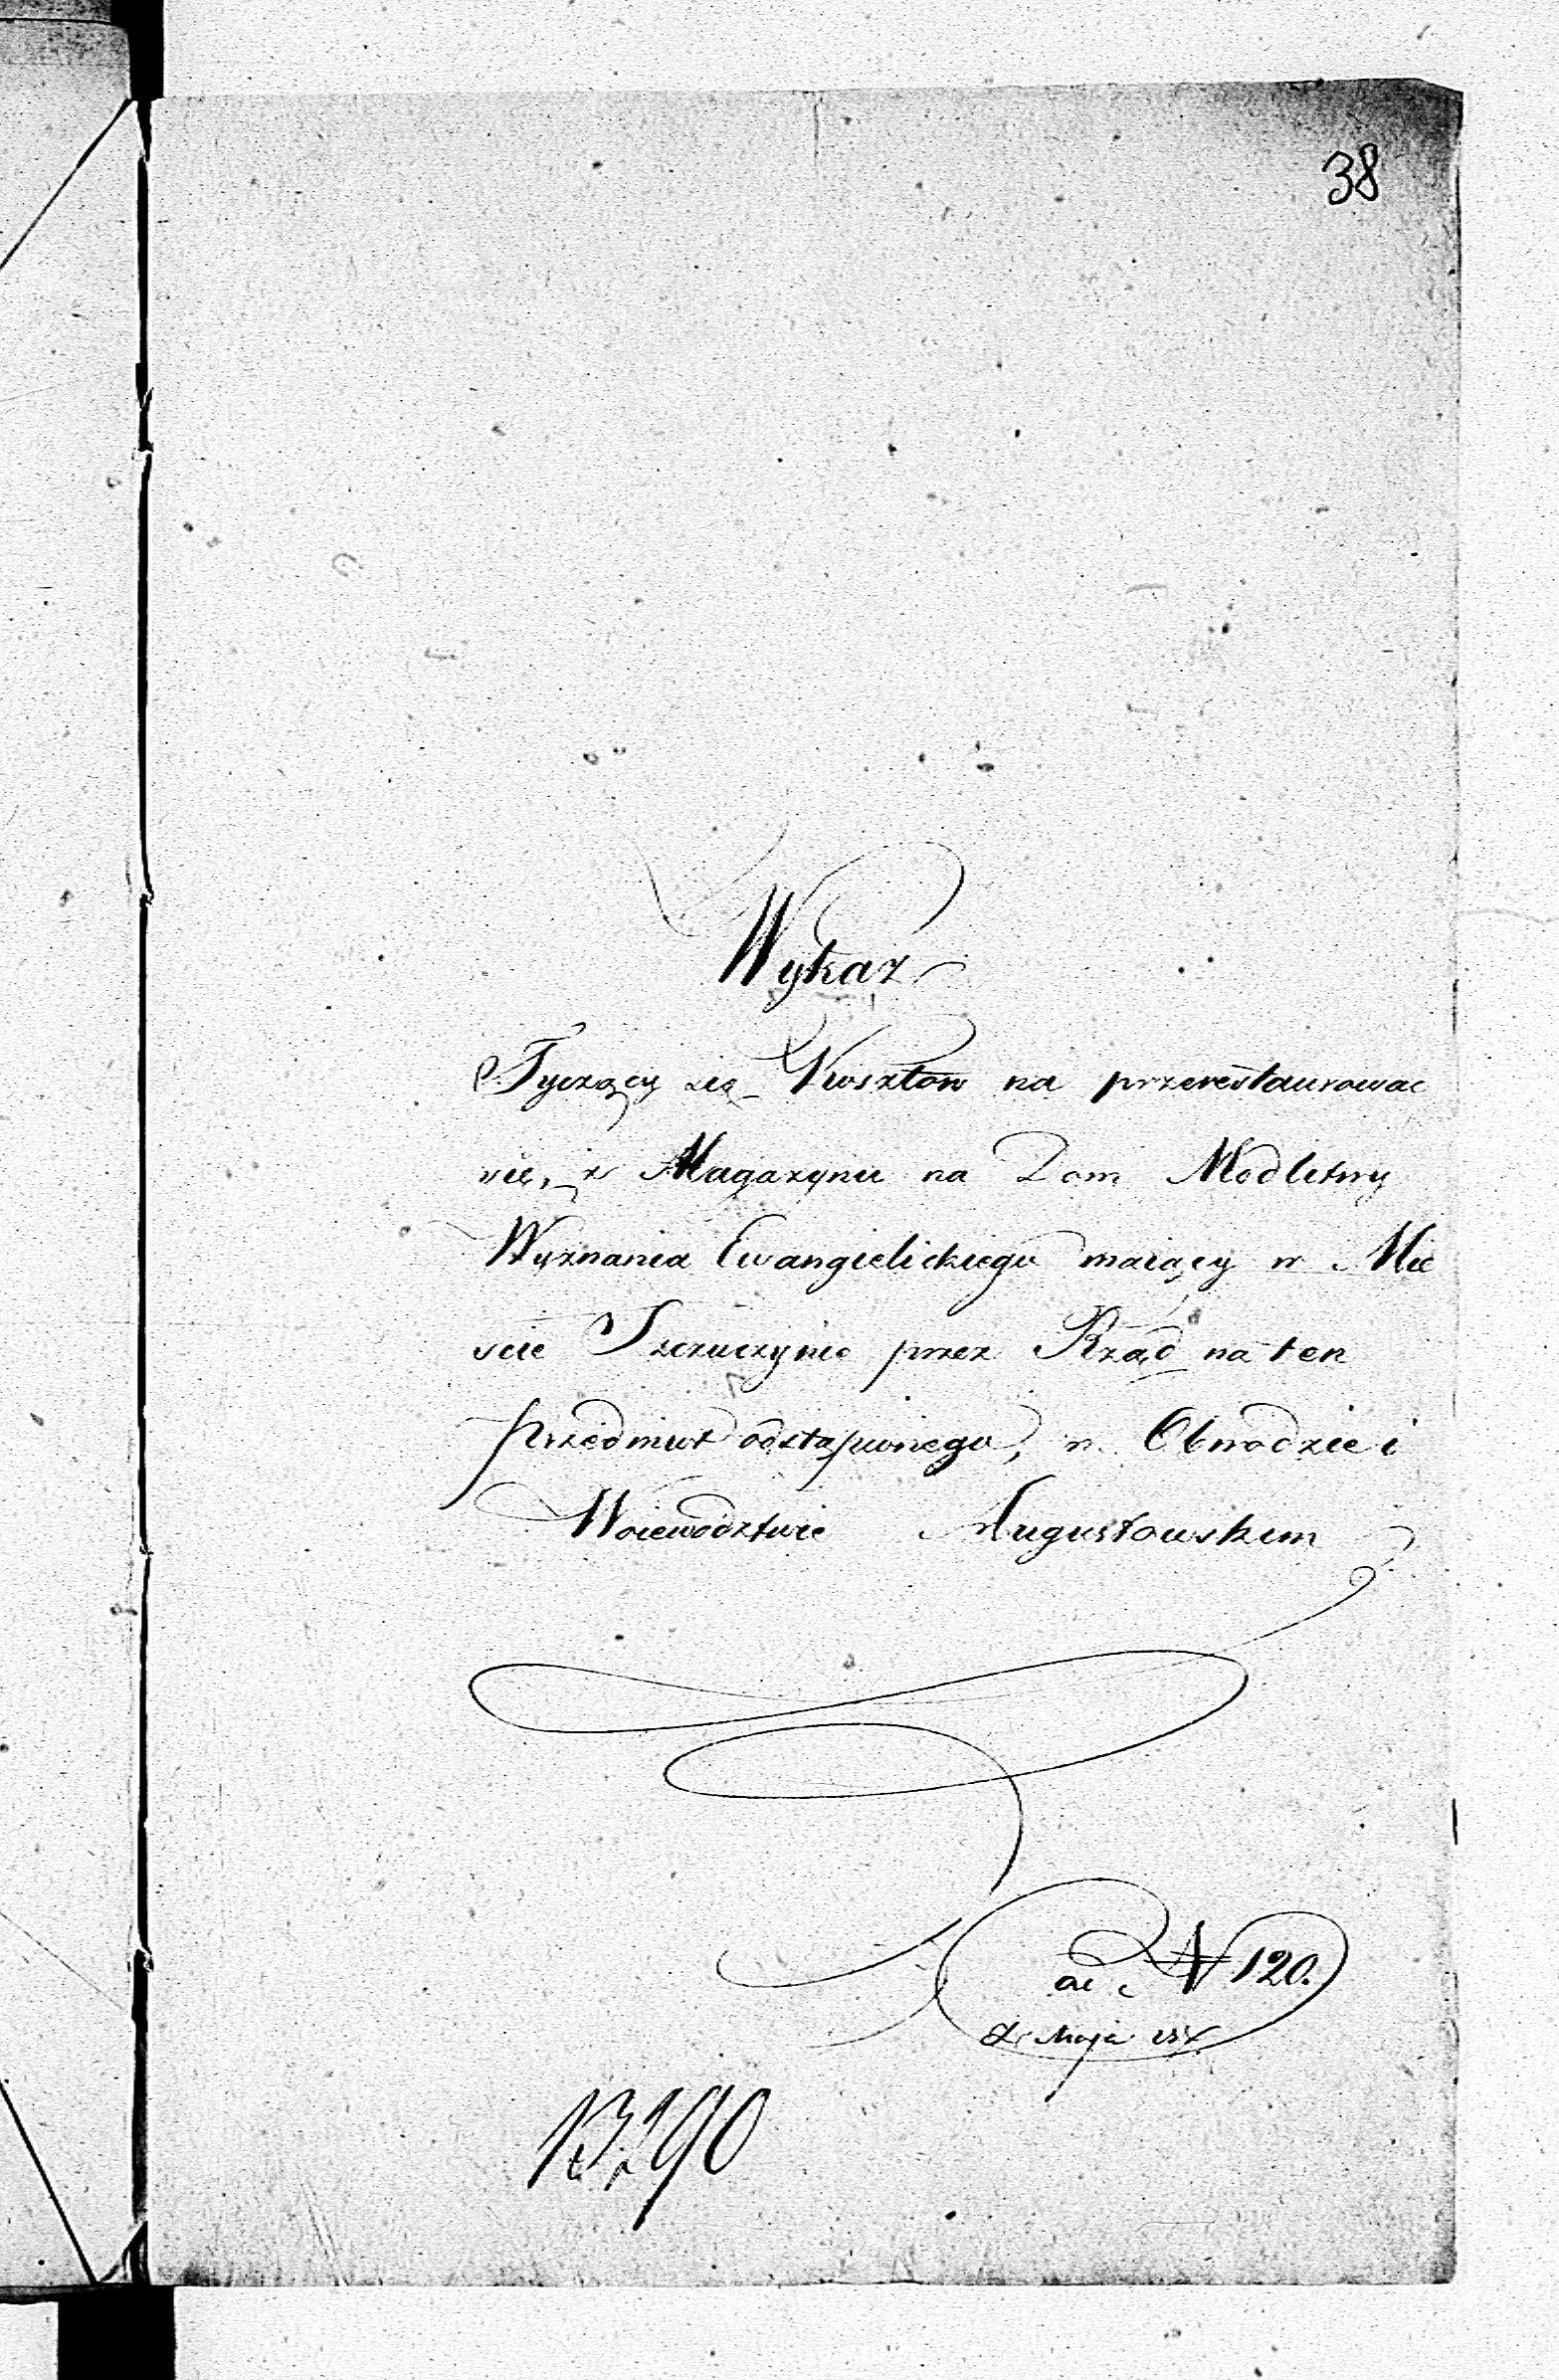 38
Wykaz
Tyczący się Kosztow na przerestaurowa
nie, z Magazynu na Dom Modlitwy
Wyznania Ewangielickiego maiący w Mie
scie Szczuczynie przez Rząd na ten
przedmiot odstąpionego, w Obwodzie i
Woiewodztwie Augustowskim
ad N 120.
Maja
13190